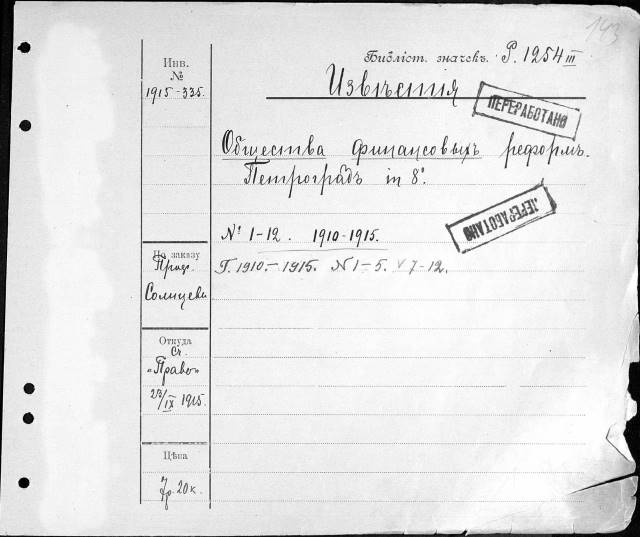 143
Библіот. значекъ. P. 1254 III
Инв.
№
1915-335.
Извѣстія
ПЕРЕРАБОТАНО
Общества финансовыхъ реформъ.
Петроградъ in 8º.
ПЕРЕРАБОТАНО
№ 1-12. 1910-1915.
Г. 1910.-1915. N 1-5. v 7-12.
По заказу
Откуда
Сч.
"Право"
23/IX 1915.
Цѣна
7р. 20к.